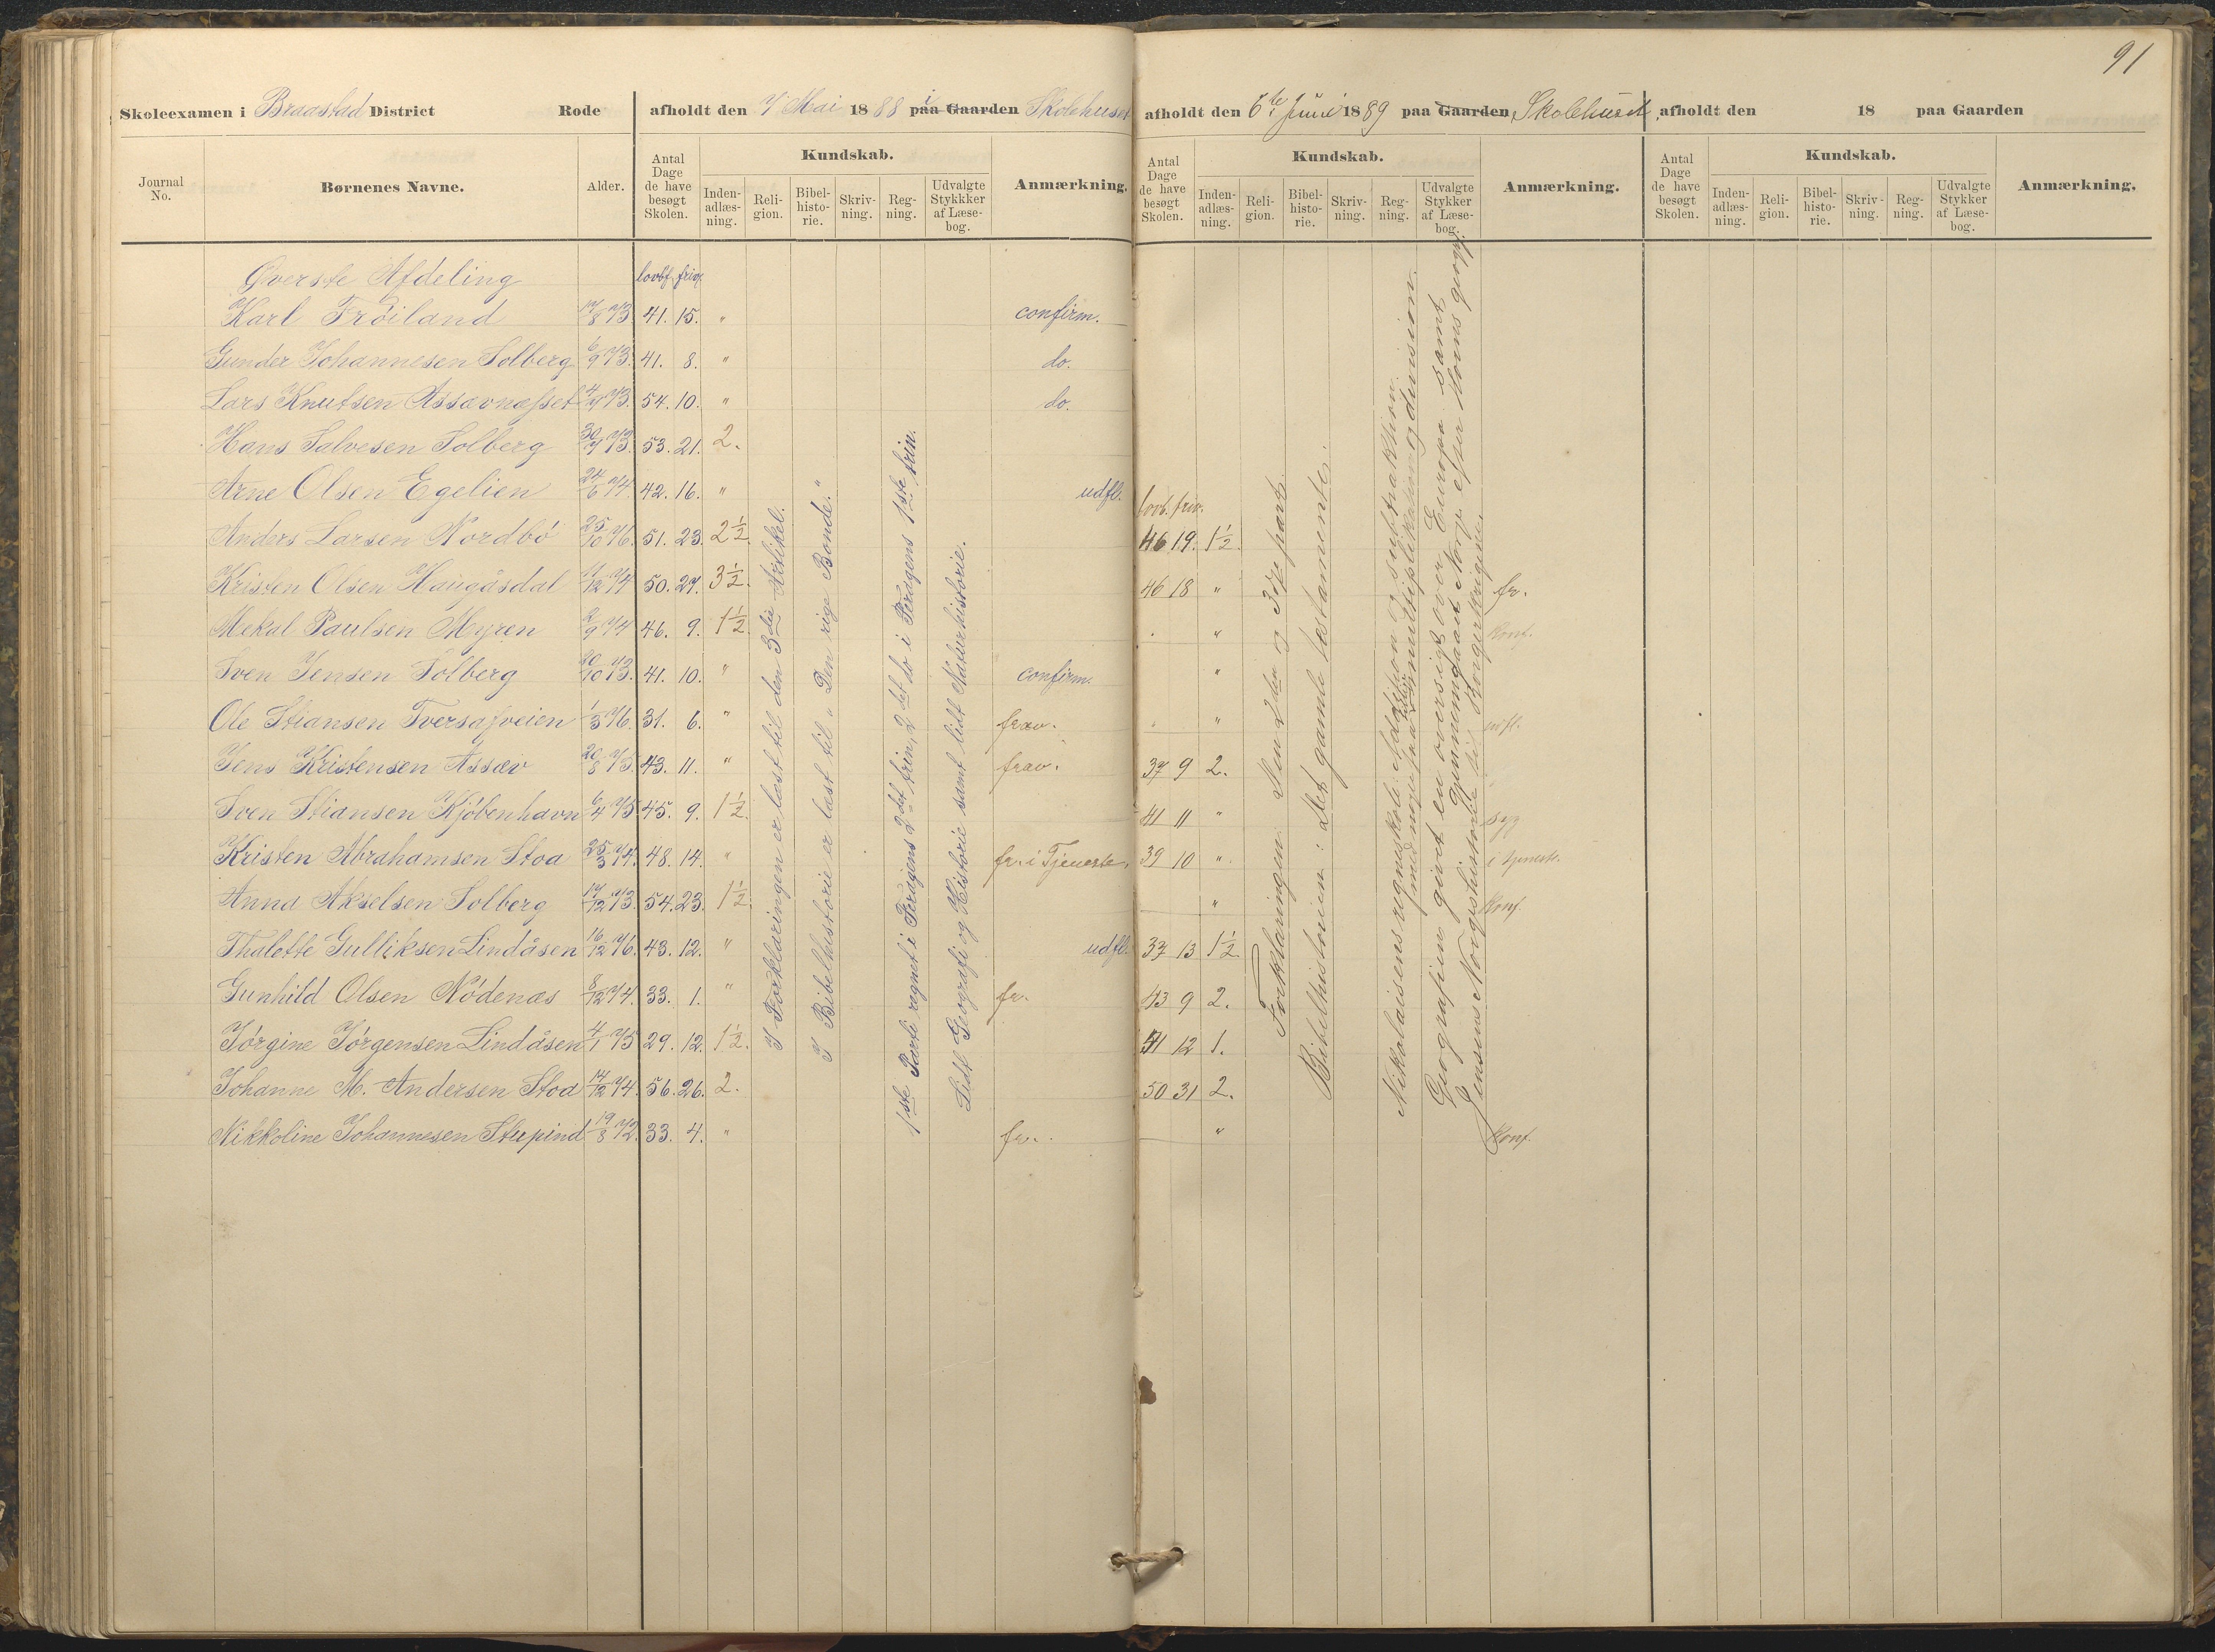 91
Skoleexamen i Braastad District Rode afholdt den 7 Mai 1888 i paa Gaarden Skolehuset afholdt den 6te Juni 1889 paa Gaarden Skolehuset afholdt den 18 paa Gaarden
Journal No. Børnenes Navne. Alder. Antal Dage de have besøgt Skolen. Kundskab. Inden-adlæs-ning. Reli-gion. Bibel-histo-rie. Skriv-ning. Reg-ning. Udvalgte Stykkker af Læse-bog. Anmærkning. Antal Dage de have besøgt Skolen. Kundskab. Inden-adlæs-ning. Reli-gion. Bibel-histo-rie. Skriv-ning. Reg-ning. Udvalgte Stykker af Læse-bog. Anmærkning. Antal Dage de have besøgt Skolen. Kundskab. Inden-adlæs-ning. Reli-gion. Bibel-histo-rie. Skriv-ning. Reg-ning. Udvalgte Stykker af Læse-bog. Anmærkning.
Øverste Afdeling lovbf. friv.
Karl Fröiland 17/8 73. 41. 15. " confirm.
Gunder Johannesen Solberg 6/9 73. 41. 8. " do.
Lars Knutsen Assævnesset 73. 54. 10. " do.
Hans Salvesen Solberg 30/7 73. 53. 21. 2.
Arne Olsen Egelien 24/6 74. 42. 16. " udfl. lovb. friv.
Anders Larsen Nordbö 25/10 76. 51. 23. 2 1/2. 46 19. 1 1/2.
Kristen Olsen Haugåsdal 11/12 74 50. 27. 3 1/2. 46 18 " fr.
Mekal Paulsen Myren 2/9 74 46. 9. 1 1/2. " konf.
Sven Jensen Solberg 20/10 73. 41. 10. " confirm. "
Ole Stiansen Tversasveien 1/3 76. 31. 6. " frav. "
Jens Kristensen Assæv 20/8 75. 43. 11. " frav. 37 9 2.
Sven Stiansen Kjöbenhavn 6/4 75. 45. 9. 1 1/2. 41 11 " syg
Kristen Abrahamsen Stoa 25/3 74. 48. 14. " fr. i Tjeneste. 39 10 " i tjeneste.
Anna Akselsen Solberg 17/12 73. 54. 23. 1 1/2. " konf.
Thalette Gulliksen Lindåsen 16/12 76. 43. 12. " udfl. 37 13 1 1/2.
Gunhild Olsen Nödenæs 8/12 74. 33. 1. " fr. 43 9 2.
Jörgine Jörgensen Lindåsen 4/1 75 29. 12. 1 1/2. 41 12 1.
Johanne M. Andersen Stoa 14/12 74. 56. 26. 2. 50 31 2.
Nikkoline Johannesen Stupind 19/8 72. 33. 4. " fr. " konf.
I Forklaringen er læst til den 3die Artikel.
I Bibelhistorie er læst til "Den rige Bonde."
1ste Parti regnet i Feragens 2det trin, 2det do i Feragens 1ste trin.
Lidt Geografi og Historie samt lidt Naturhistorie.
Forklaringen: Den 2den og 3dje part.
Bibelhistorien: Det gamle testamente.
Nikolaisens regneskole: Addition og subtraktion
med mere fra multiplikation og division.
Geografien givet en oversigt over Europa samt
gjennemgaaet Norge efter Horns geogr.
Jensens Norgeshistorie til Borgerkrigene.